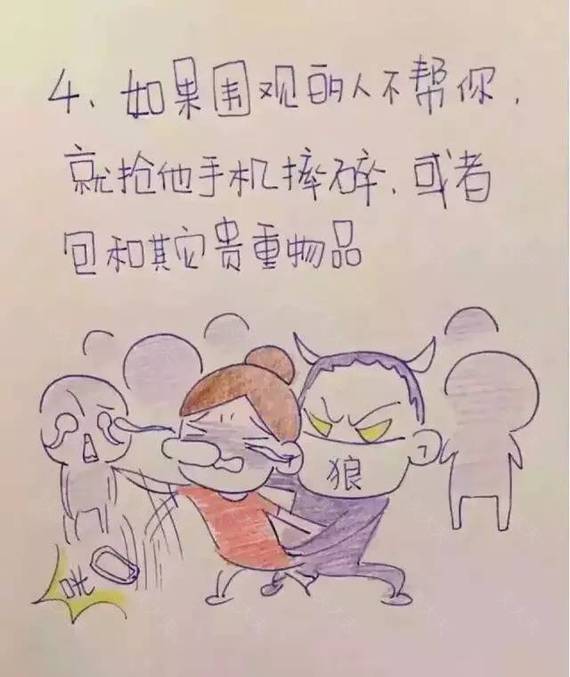 4、如果围观的人不帮你,
就抢他手机摔碎、或者
包和其它贵重物品
狼
咣